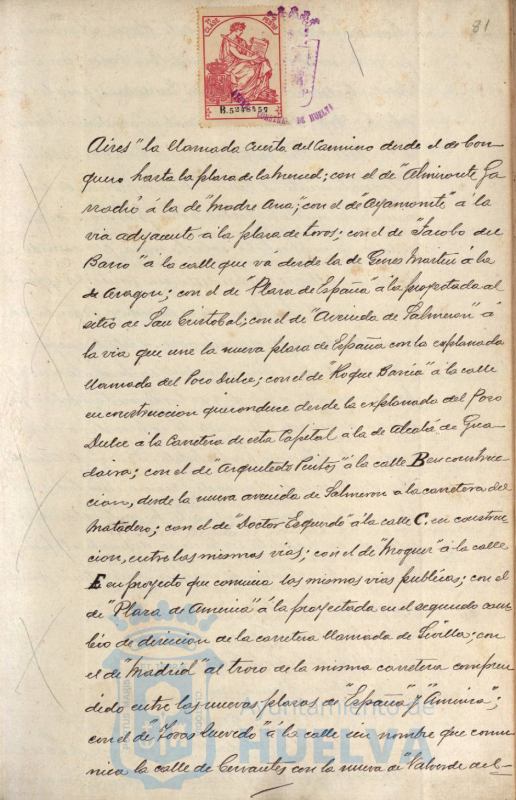 81
CLASE
B.5248457
CONSTNAL. DE HUELVA
Aires" la llamada cuesta del Camino desde el de Con-
quero hasta la plaza de la Merced; con el de "Almirante Ga
rrocho" á la de "Madre Ana"; con el de "Ayamonte" á la
via adyacente á la plaza de toros; con el de "Jacobo del
Barco" á la calle que vá desde la de Gines Martin á la
de Aragon; con el de "Plaza de España" á la proyectada al
sitio de San Cristobal; con el de "Avenida de Salmeron" á
la via que une la nueva plaza de España con la explanada
llamada del Pozo Dulce; con el de "Roque Barcia" á la calle
en construccion que conduce desde la explanada del Pozo
Dulce á la Carretera de esta Capital á la de Alcalá de Gua
daira; con el de "Arquitecto Pinto" á la calle B en construc-
cion, desde la nueva avenida de Salmeron á la carretera del
Matadero; con el de "Doctor Esquerdo" á la calle C. en construc-
cion, entre las mismas vias; con el de "Moguer" á la calle
E en proyecto que comunica las mismas vias publicas; con el
de "Plaza de America" á la proyectada en el segundo cam-
bio de direccion de la carretera llamada de Sevilla; con
el de "Madrid" al trozo de la misma carretera compren
dido entre las nuevas plazas de "España" y "America";
con el de "Tovar Quevedo" á la calle sin nombre que comu
nica la calle de Cervantes con la nueva de "Valverde del
Ayuntamiento de
HUELVA